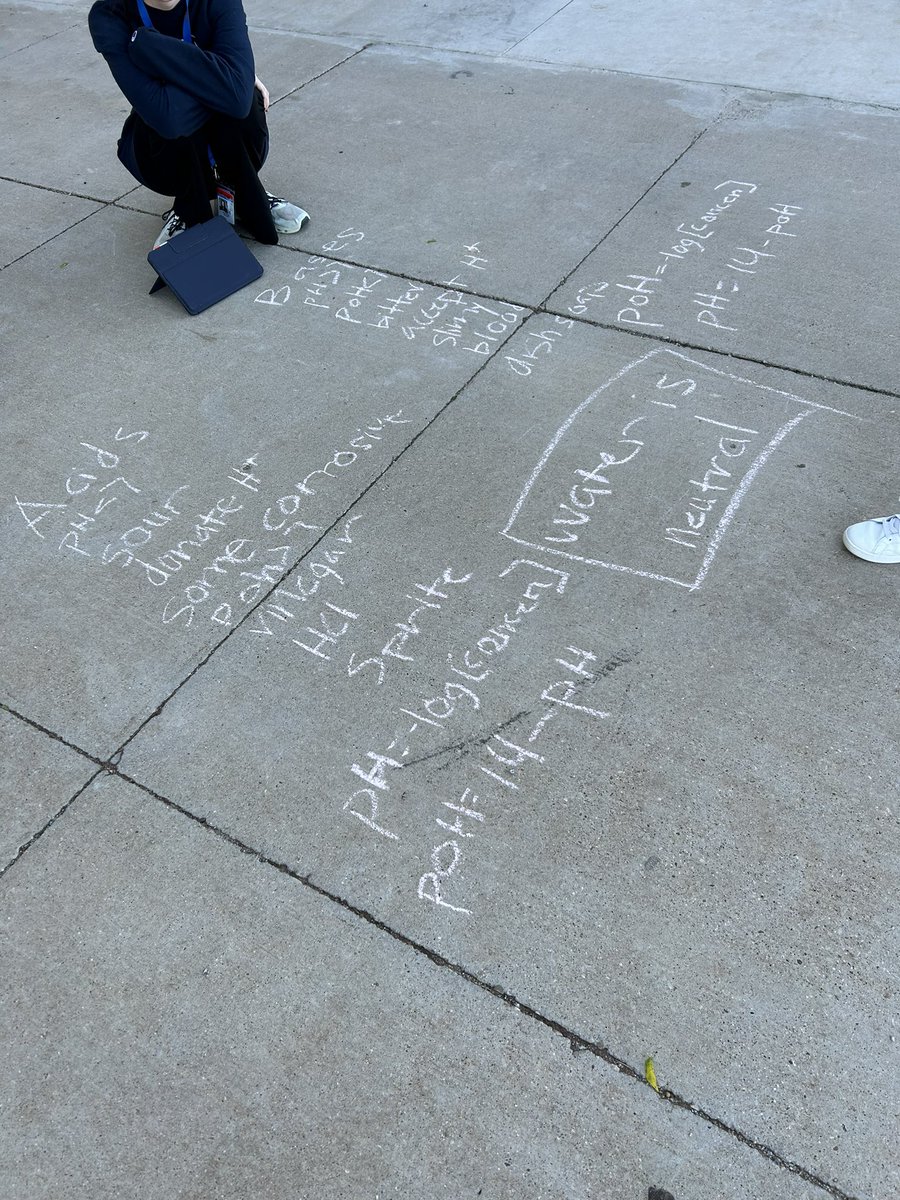 Acids
pH<7
sour
donate H+
some corrosive
pOH>7
vinegar
HCl
Sprite
pH=-log[concen]
pOH=14-pH
Bases
pH>7
pOH<7
bitter
accept H+
slimy
blood
dish soap
pOH=-log[concen]
pH=14-pOH
Water is
neutral